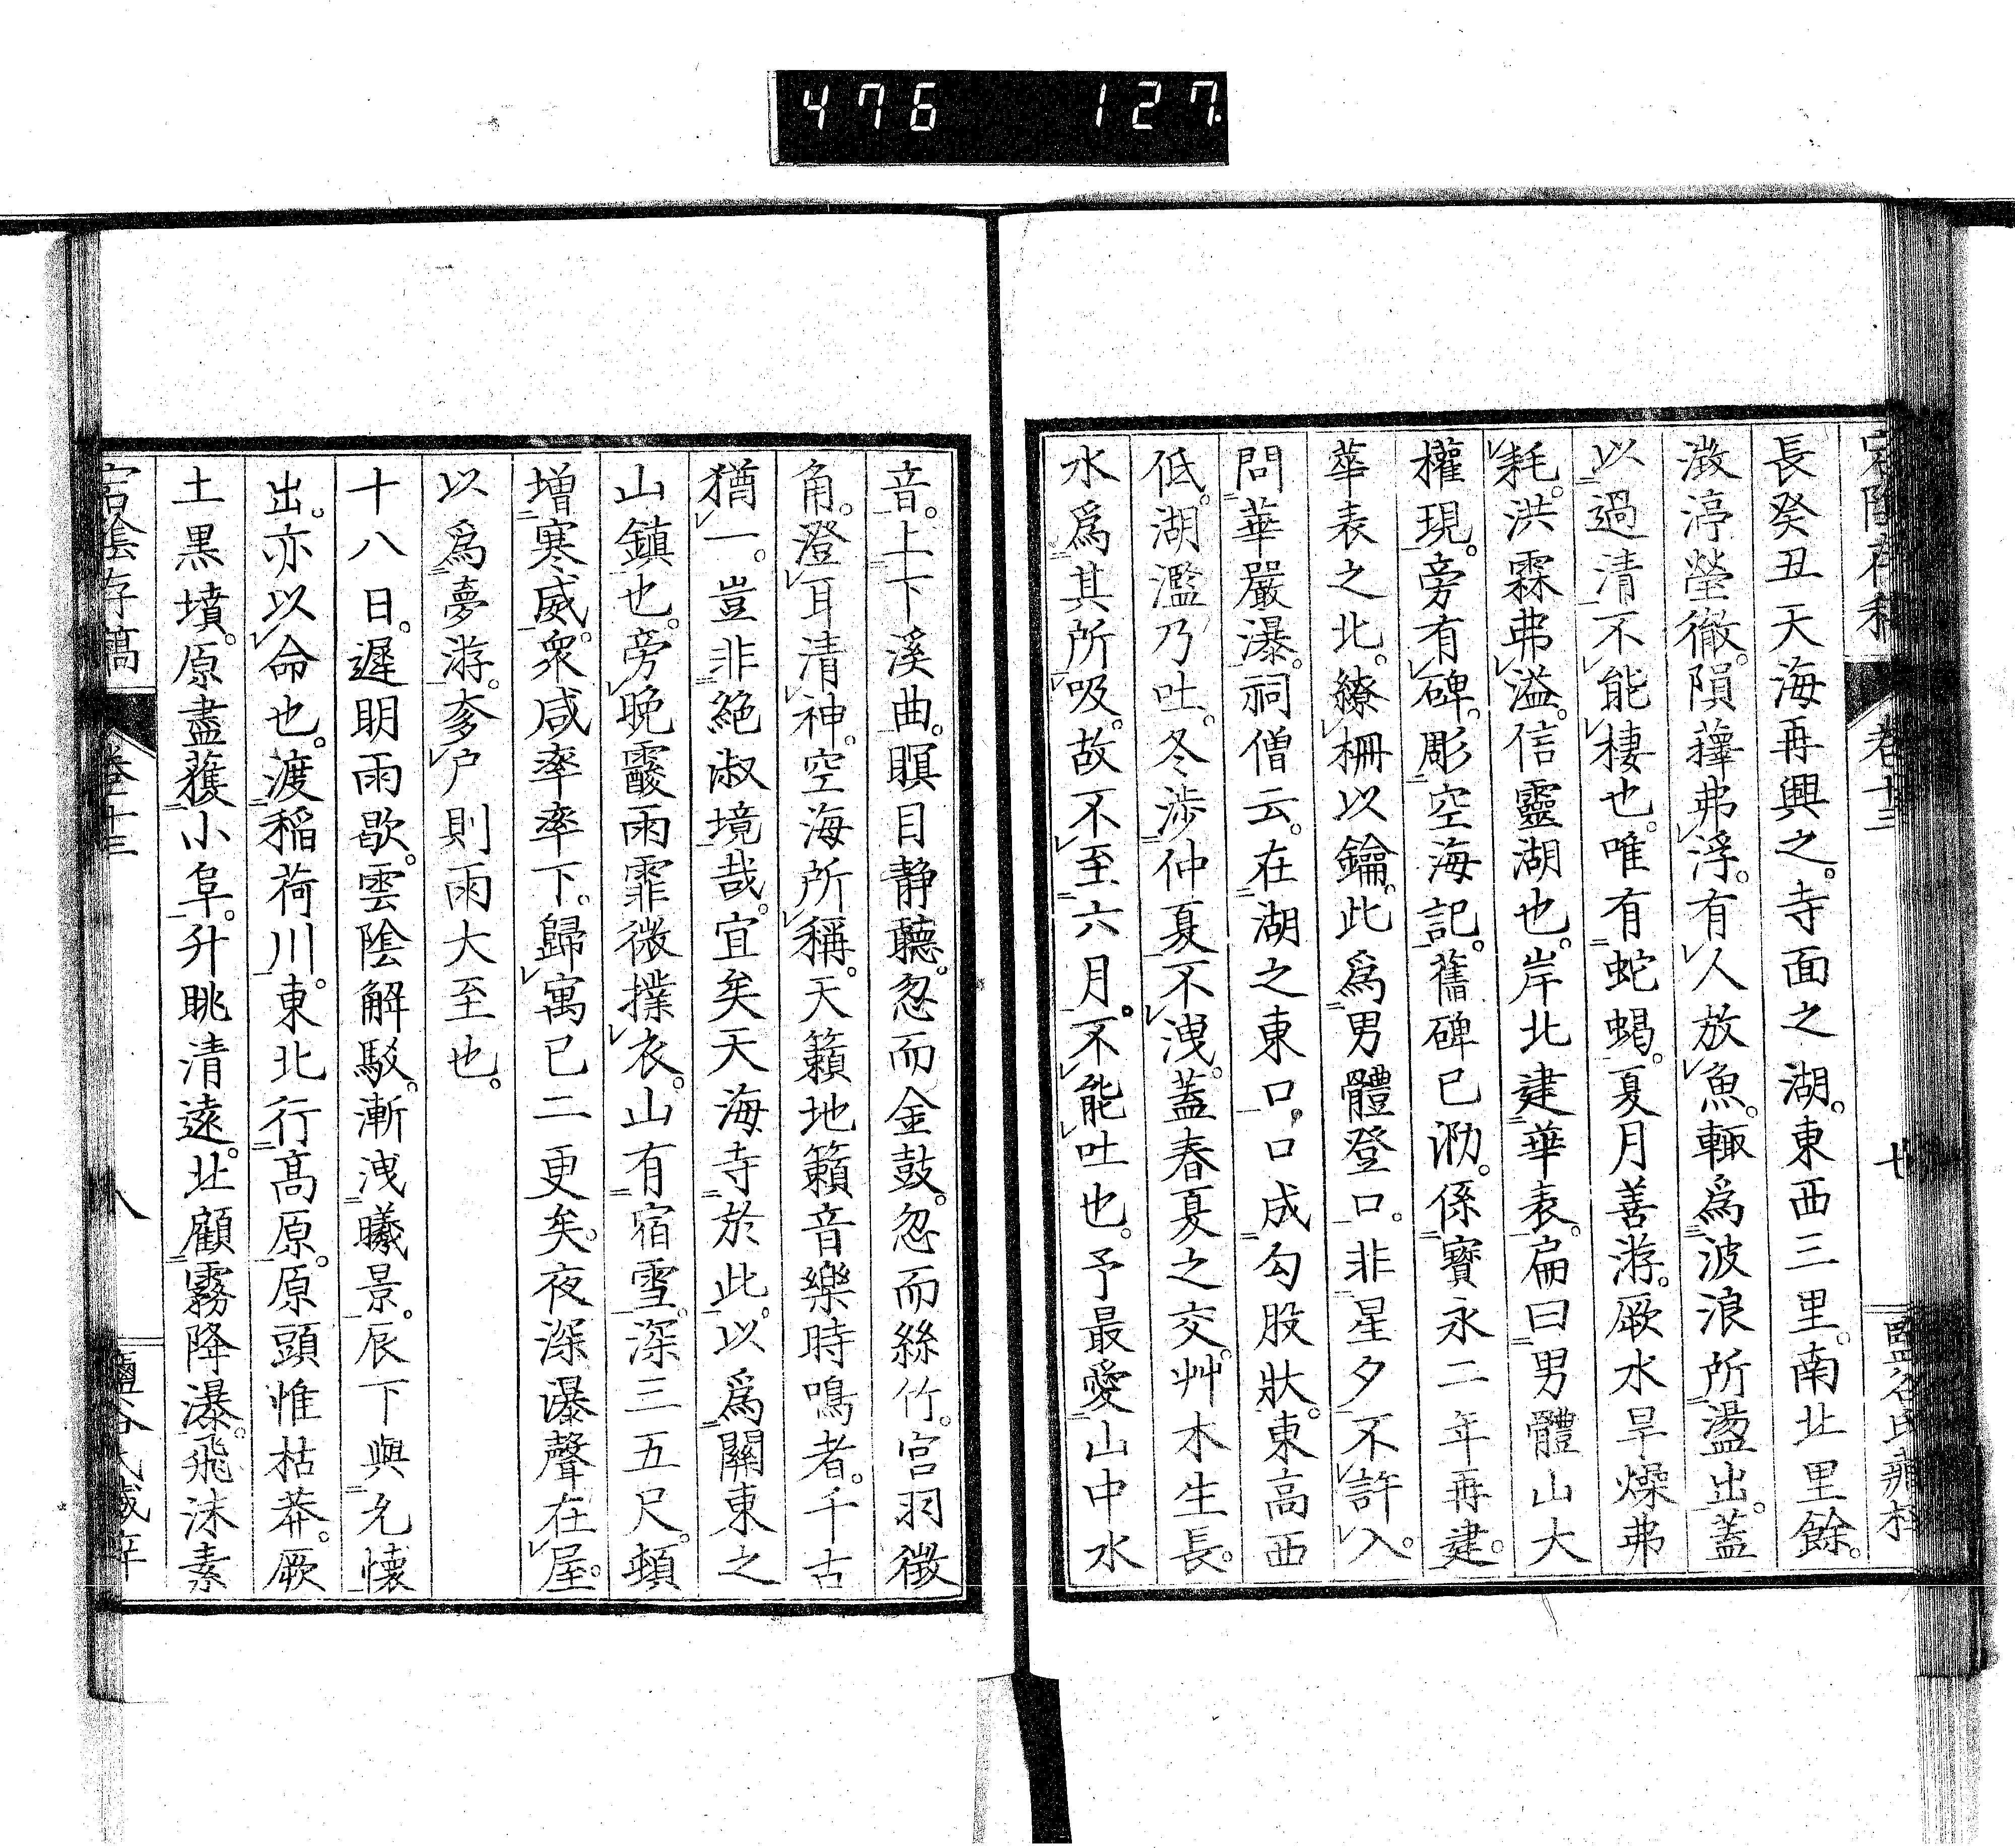 476 127
長癸丑天海再興之。寺面之湖。東西三里。南北里餘。
澂渟瑩徹。隕蘀弗浮。有人放魚。輙爲波浪所盪出。蓋
以過清不能棲也。唯有蛇蝎。夏月善游。厥水旱燥弗
耗。洪霖弗溢。信靈湖也。岸北建華表。扁曰男體山大
權現。旁有碑。彫空海記。舊碑已泐。係寶永二年再建。
華表之北。繚柵以鑰。此爲男體登口。非星夕不許入。
問華嚴瀑。祠僧云。在湖之東口。口成勾股狀。東高西
低。湖濫乃吐。冬涉仲夏不洩。蓋春夏之交。艸木生長。
水爲其所吸。故不至六月。不能吐也。予最愛山中水
音。上下溪曲。瞑目静聽。忽而金鼓。忽而絲竹。宮羽徵
角。澄耳清神。空海所稱。天籟地籟音樂時鳴者。千古
猶一。豈非絶淑境哉。宜矣天海寺於此。以爲關東之
山鎮也。旁晚霰雨霏微撲衣。山有宿雪。深三五尺。頓
增寒威。衆咸率率下。歸寓已二更矣。夜深瀑聲在屋。
以爲夢游。奓户則雨大至也。
十八日。遲明雨歇。雲陰解駁。漸洩曦景。辰下與允懷
出。亦以命也。渡稲荷川。東北行高原。原頭惟枯莽。厥
土黒墳。原盡蒦小阜。升眺清遠。北顧霧降瀑。飛沫素
卷十三
八